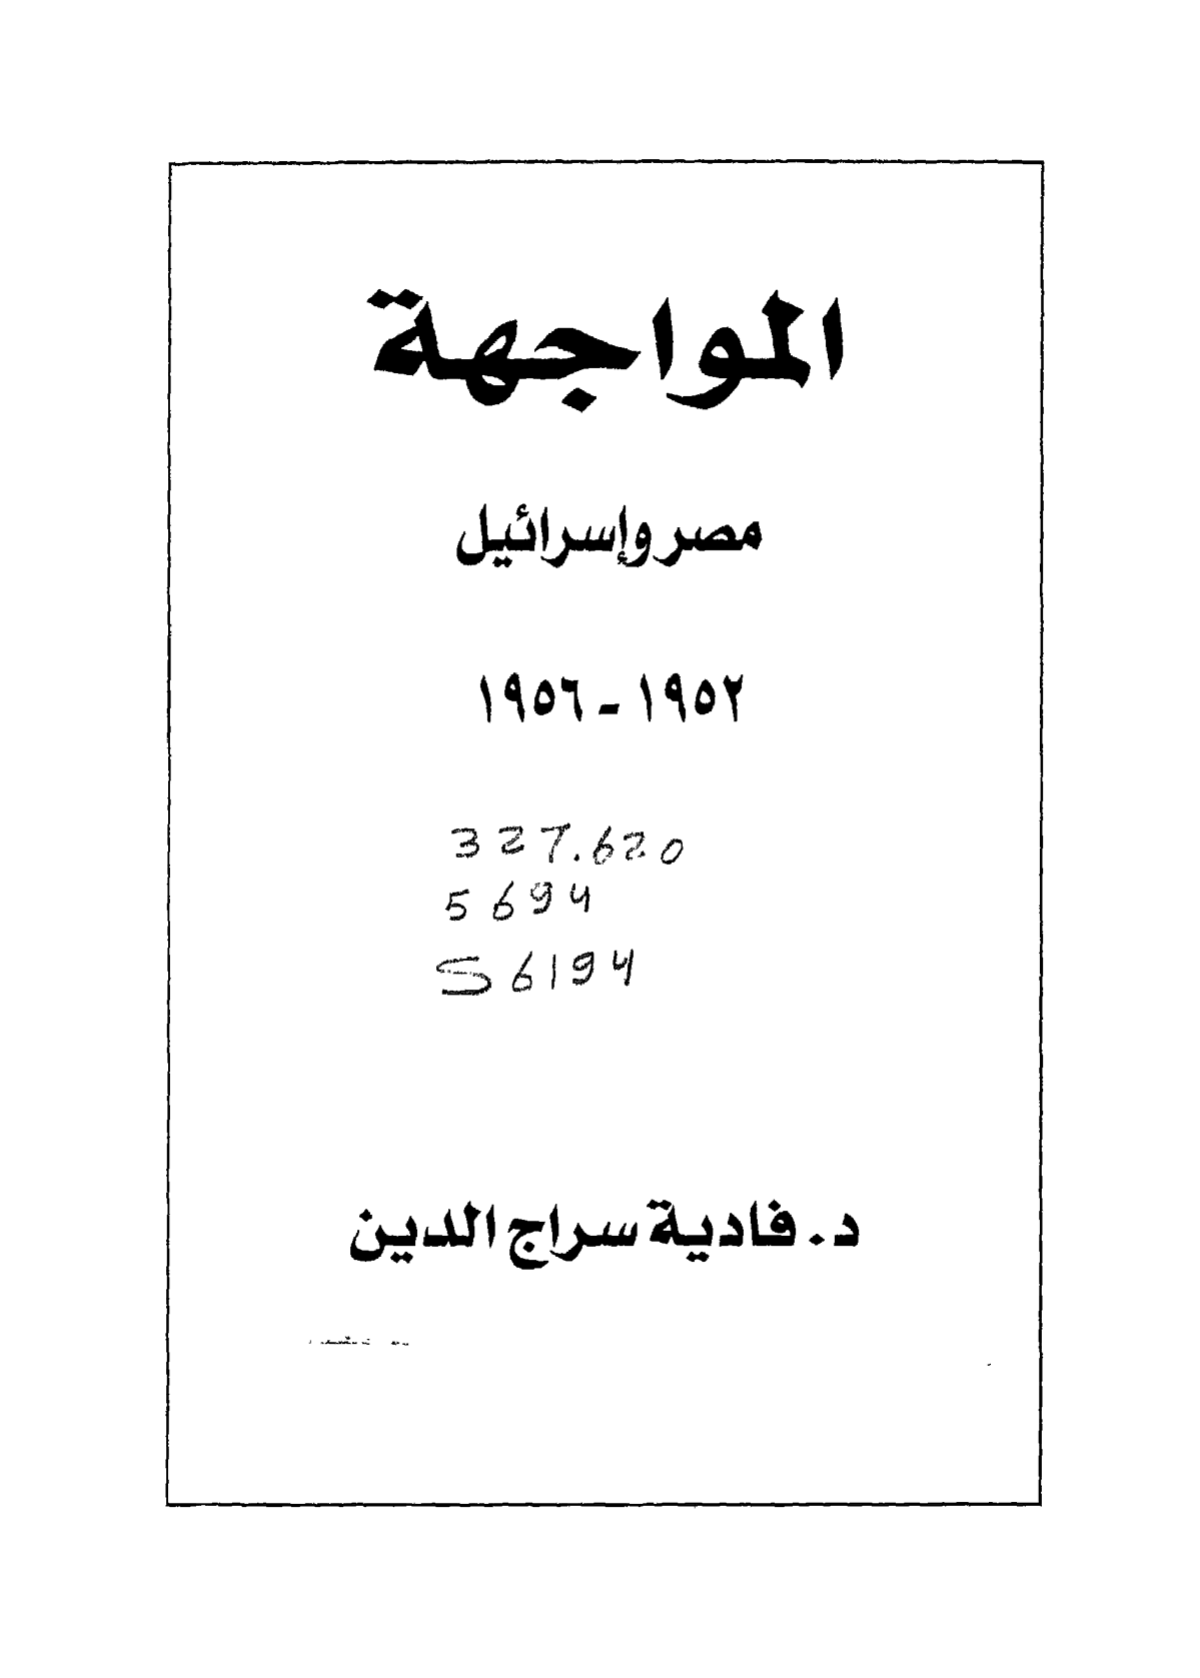 المواجهة
مصر وإسرائيل
١٩٥٢ - ١٩٥٦
327.620
5694
S6194
د. فادية سراج الدين